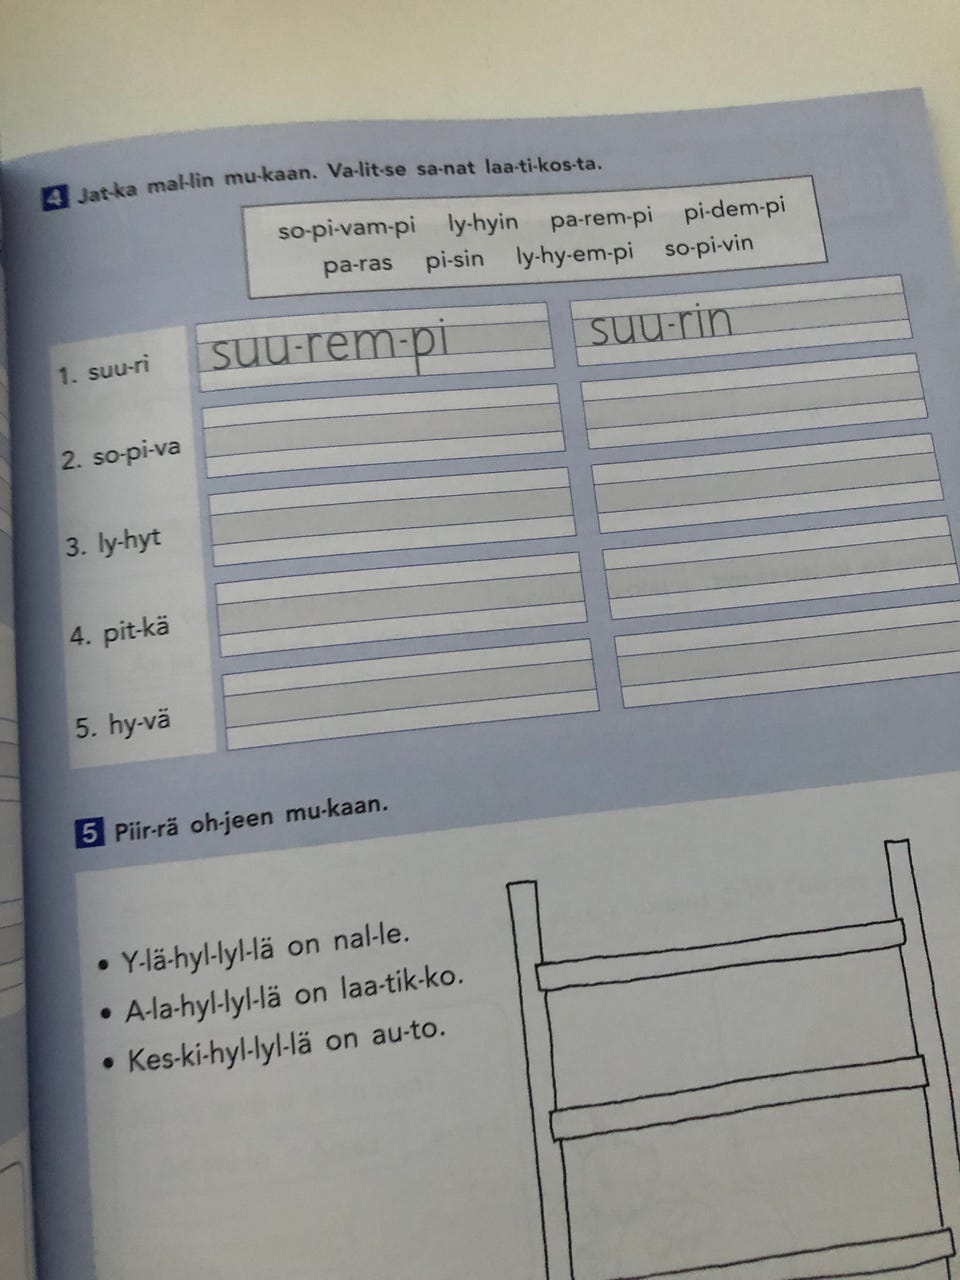 4 Jat-ka mal-lin mu-kaan. Va-lit-se sa-nat laa-ti-kos-ta.
so-pi-vam-pi ly-hyin pa-rem-pi pi-dem-pi
pa-ras pi-sin ly-hy-em-pi so-pi-vin
1. suu-ri suu-rem-pi suu-rin
2. so-pi-va
3. ly-hyt
4. pit-kä
5. hy-vä
5 Piir-rä oh-jeen mu-kaan.
• Y-lä-hyl-lyl-lä on nal-le.
• A-la-hyl-lyl-lä on laa-tik-ko.
• Kes-ki-hyl-lyl-lä on au-to.